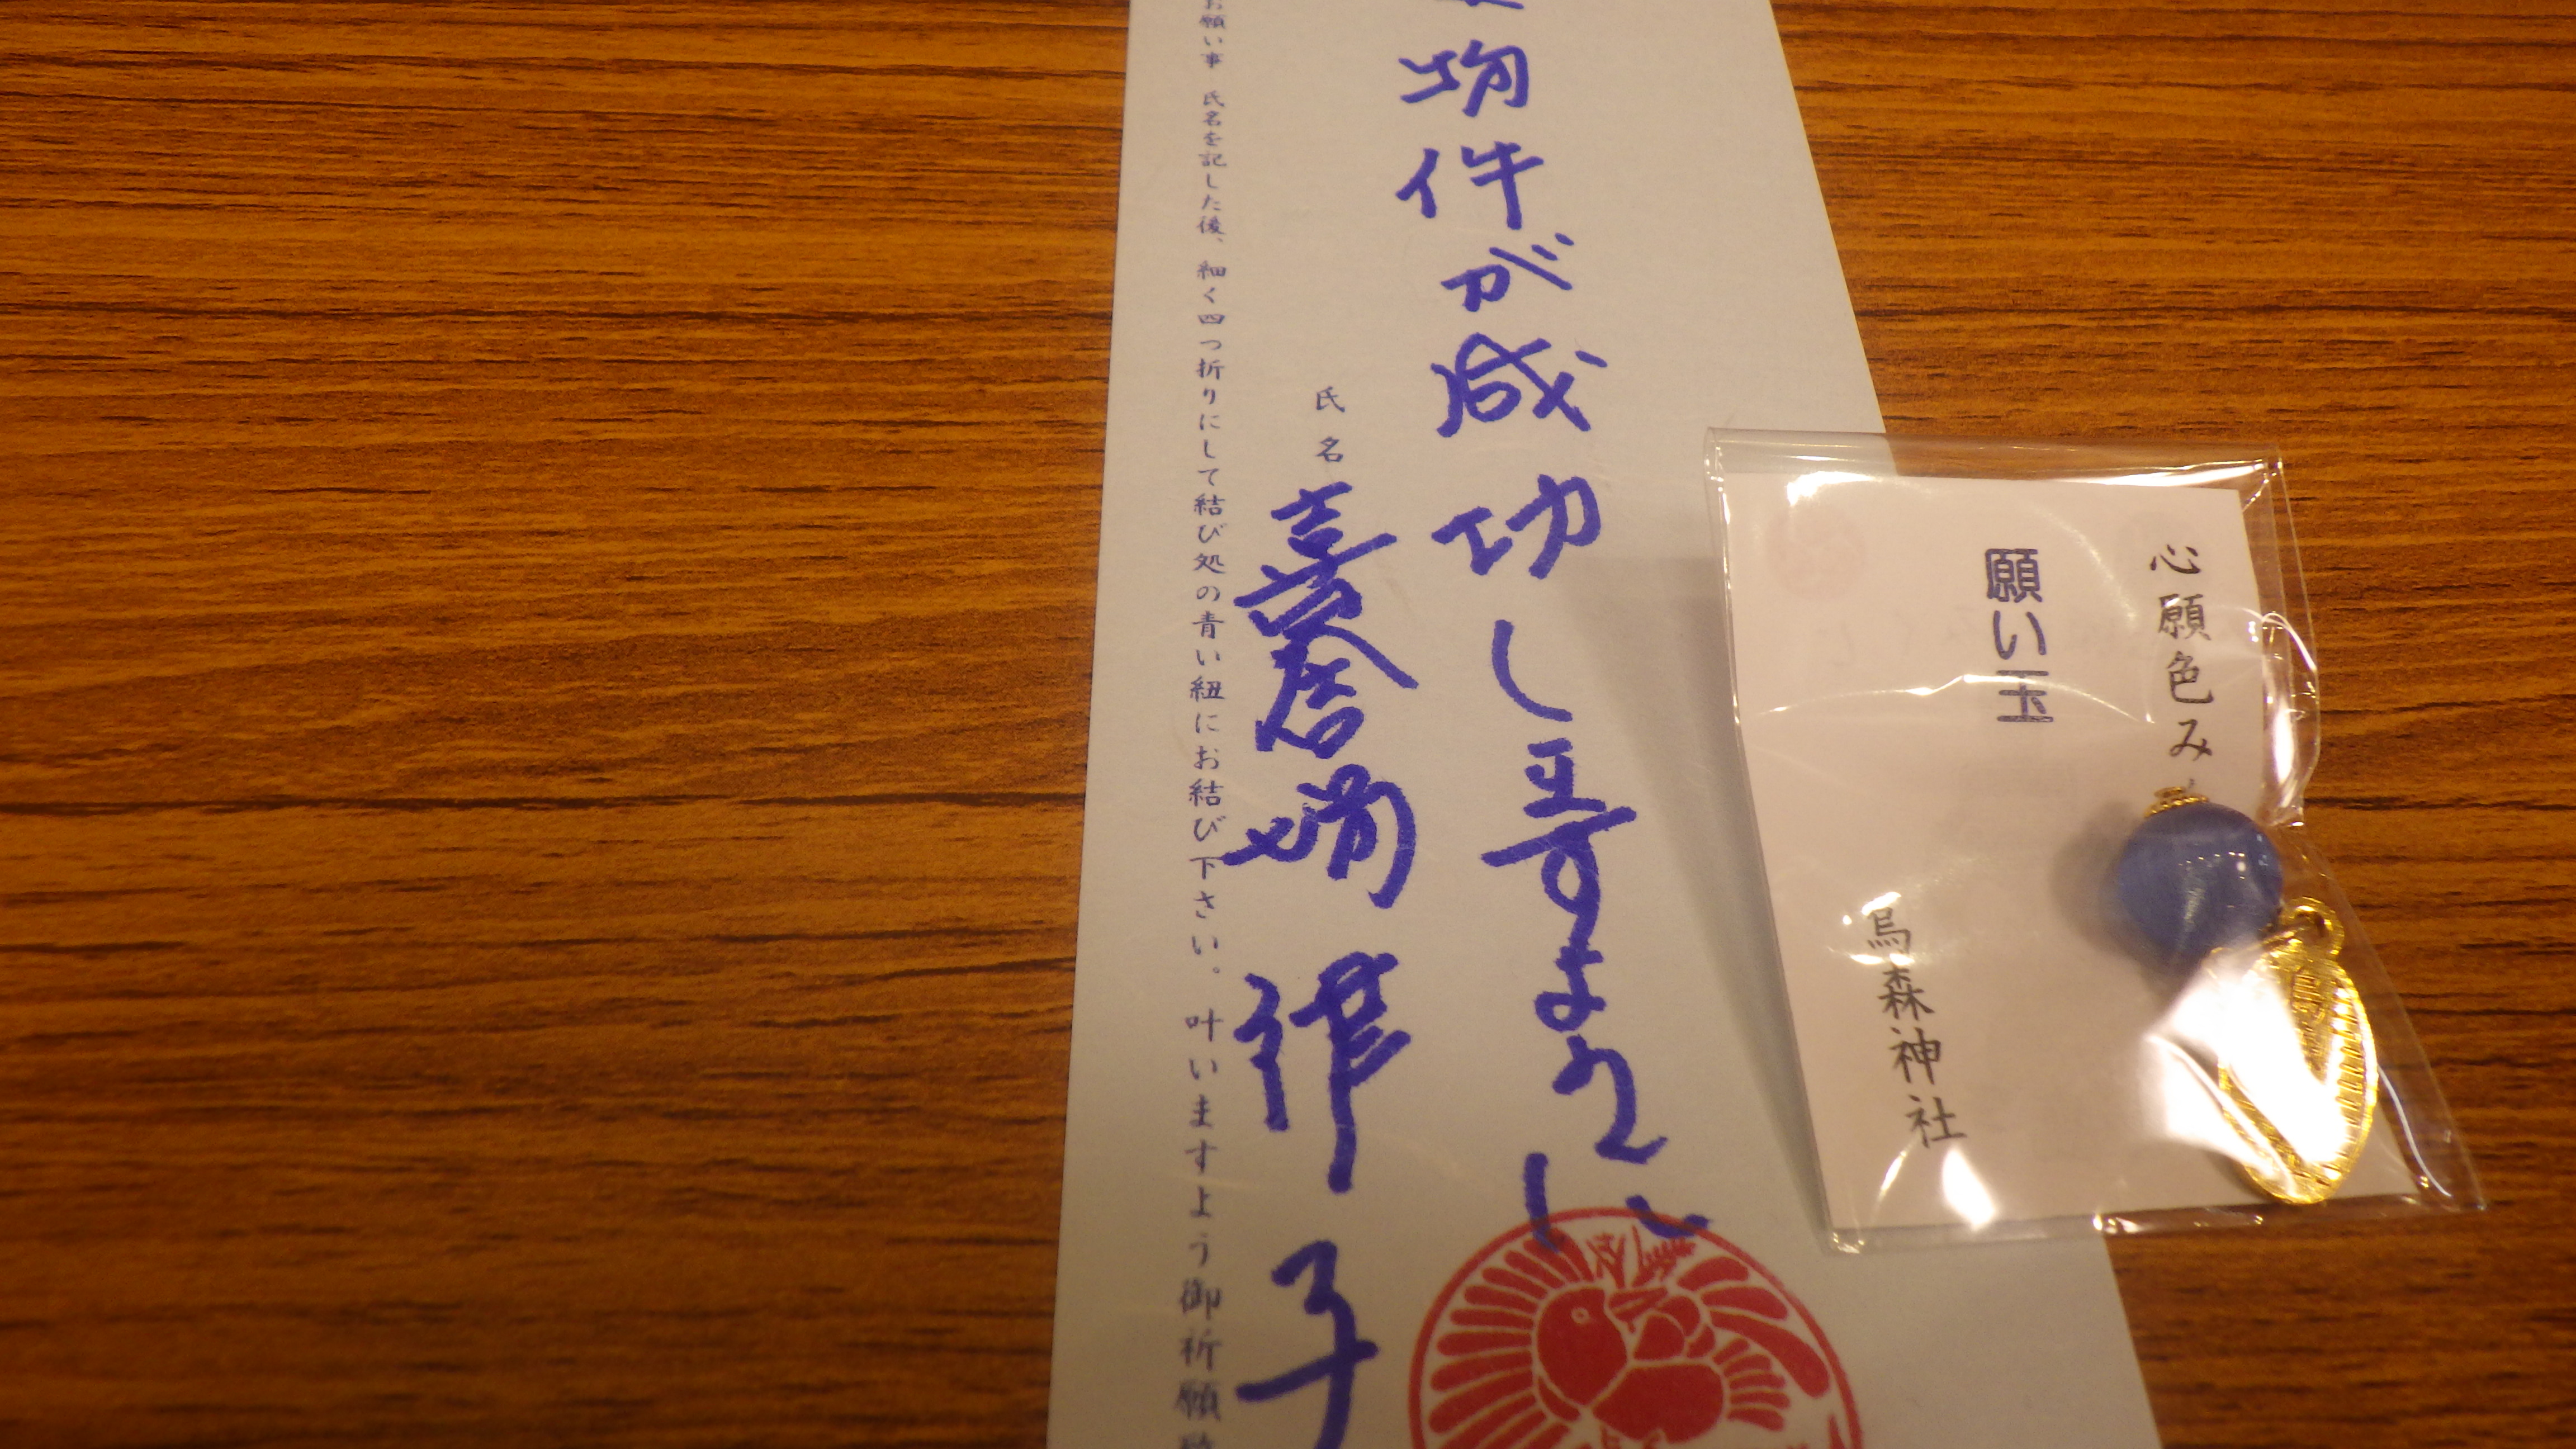 心願色み
願い玉
烏森神社
物件が成功しますように
氏名
律子
お願い事 氏名を記した後、細く四つ折りにして結び処の青い紐にお結び下さい。叶いますよう御祈願